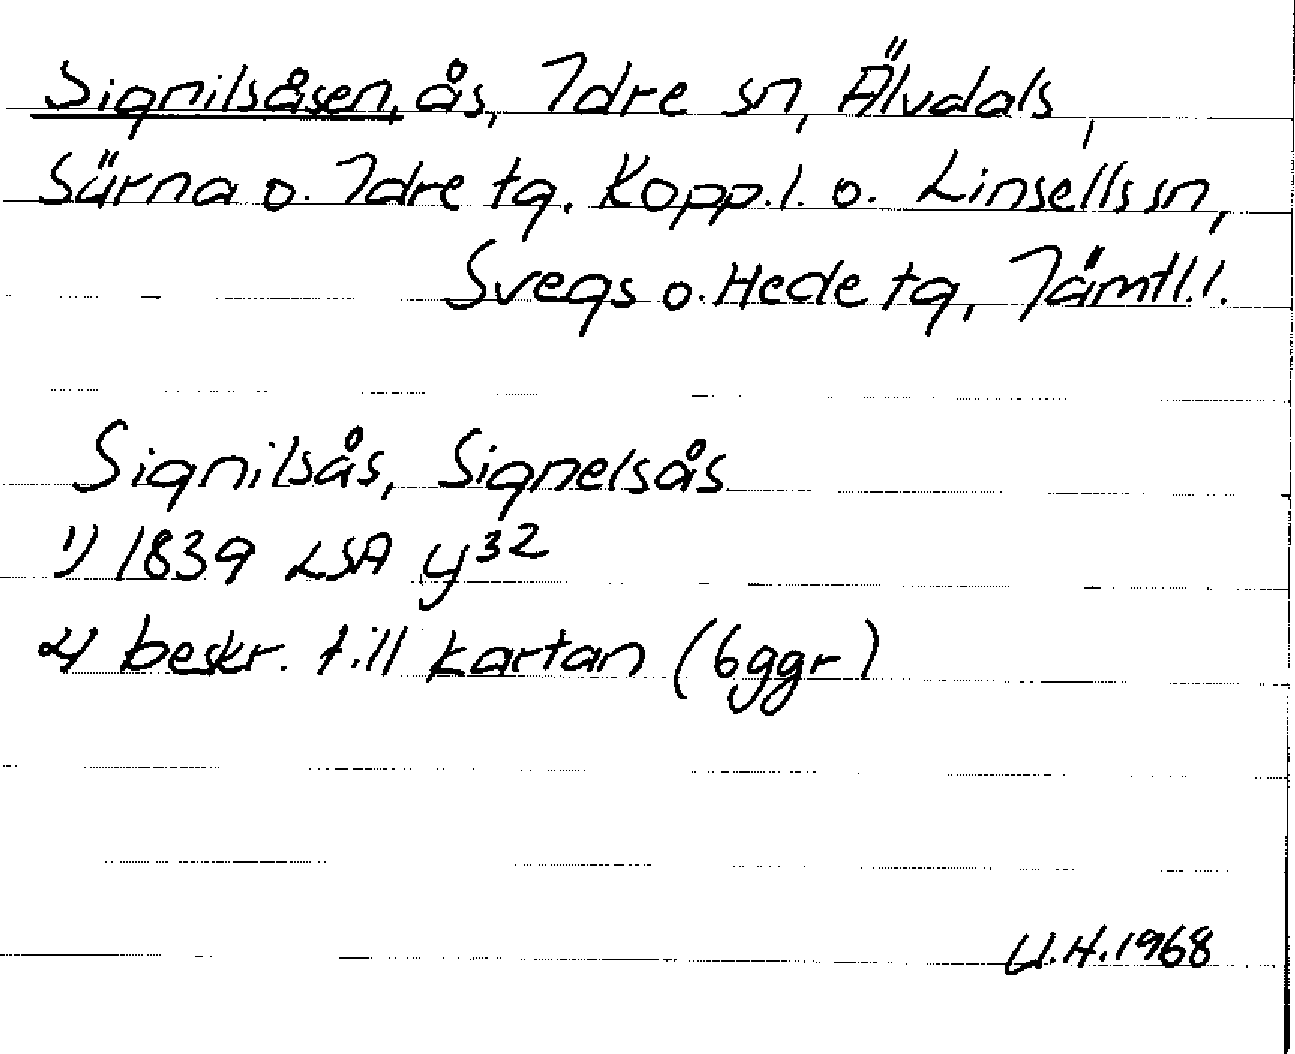 Signilsåsen, ås, Idre sn, Älvdals,
Särna o. Idre tg. Kopp.l. o. Linsells sn,
Svegs o. Hede tg, Jämtl.l.
Signilsås, Signelsås
1) 1839 LSA y32
2) beskr. till kartan (6ggr)
U.H.1968